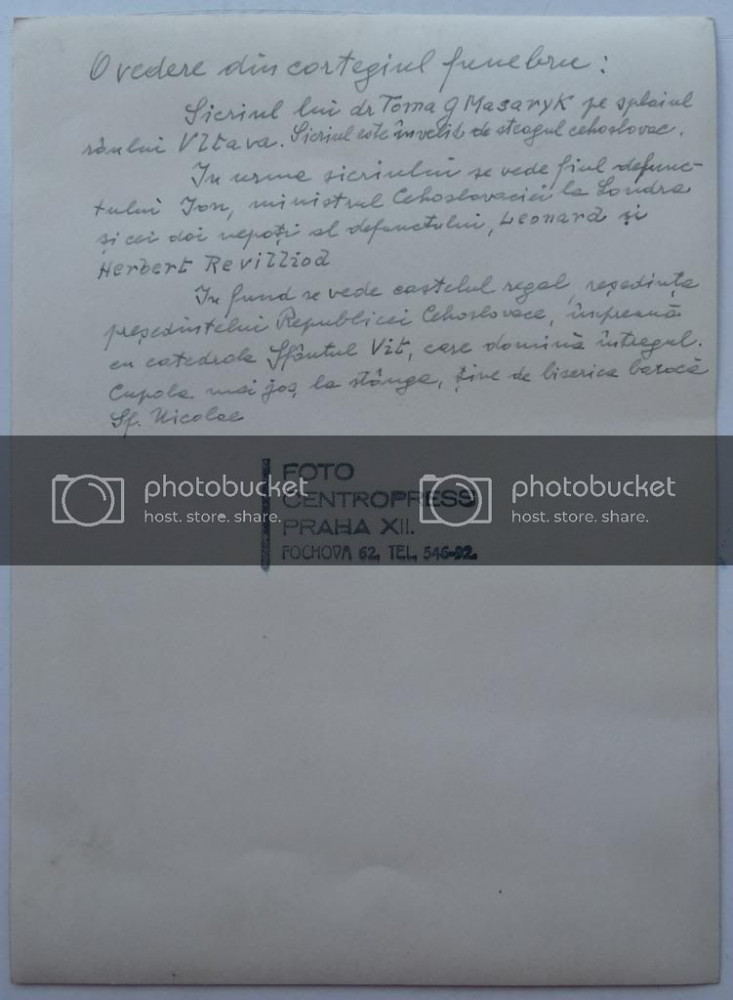 O vedere din cortegiul funebru :
Sicriul lui dr Toma G Masaryk pe splaiul
râului Vltava. Sicriul este învelit de steagul cehoslovac.
In urma sicriului se vede fiul defunc-
tului Ion, ministrul Cehoslovaciei la Londra
și cei doi nepoți al defunctului, Leonard și
Herbert Revilliod
In fund se vede castelul regal, reședința
președintelui Republicei Cehoslovace, împreună
cu catedrala Sfântul Vit, care domină întregul.
Cupola mai jos, la stânga, ține de biserica barocă
Sf. Nicolae
FOTO
CENTROPRESS
PRAHA XII.
FOCHOVA 62, TEL. 546-92.
photobucket
host. store. share.
photobucket
host. store. share.